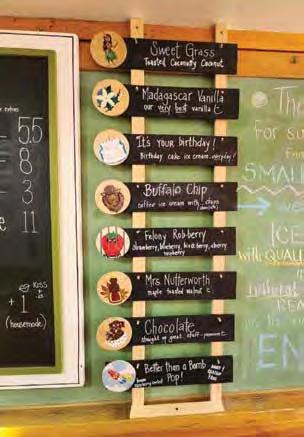 extras
5.5
8
3
11
+1
(housemade)
Sweet Grass
Toasted Coconutty Coconut
Madagascar Vanilla
our very best vanilla
It's your birthday!
Birthday cake ice cream everyday!
Buffalo Chip
coffee ice cream with chips
Felony Robberry
strawberry, blueberry, blackberry, cherry
raspberry
Mrs. Nutterworth
maple toasted walnut
Chocolate
straight up great stuff
Better than a Bomb
Pop!
Th
For s
SMALL
we
ICE
with QUAL
natural
REA
EN